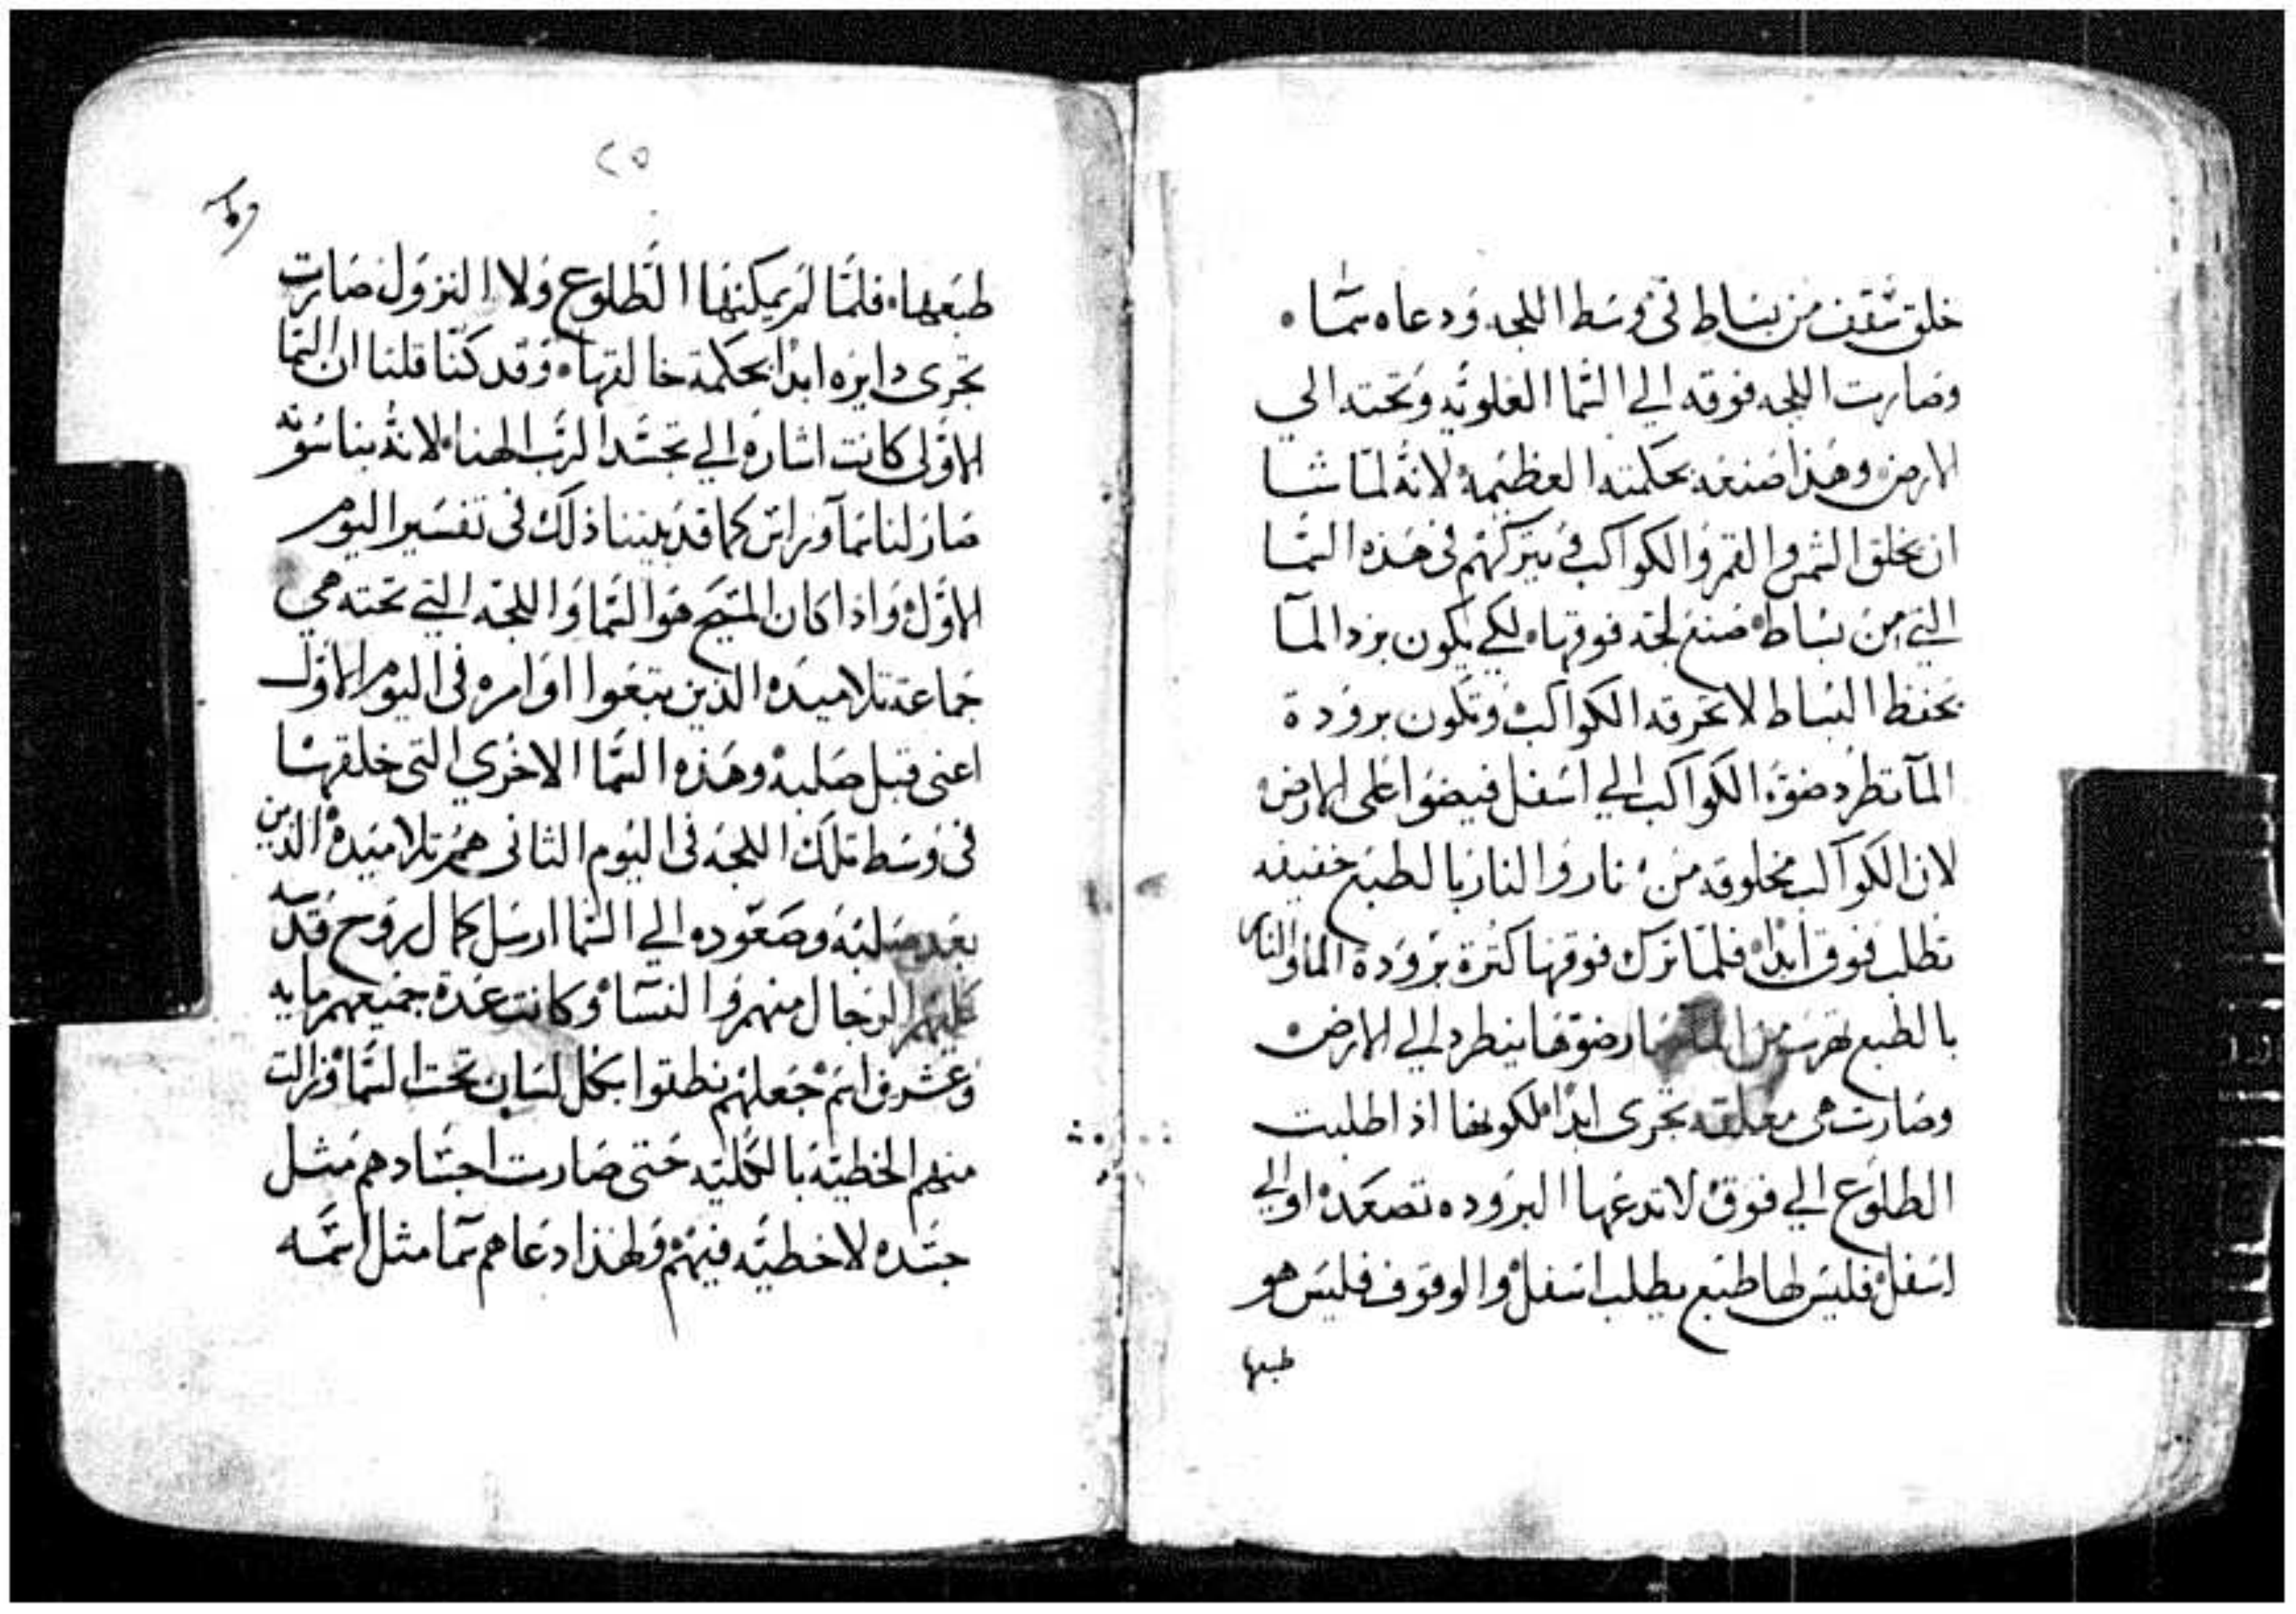 خلق سقف من بساط في وسط اللجه ودعاه سما ٠
وصارت اللجه فوقه الي السما العلويه وتحته الي
الارض وهذا صنعه بحكمته العظيمه لانه لما شا
ان يخلق الشمس والقمر والكواكب ويتركهم في هذه السما
التي من بساط صنع لجه فوقها لكي يكون برد المآ
يحفظ البساط لا تحرقه الكواكب وتكون برودة
المآ تطرد ضوة الكواكب الي اسفل فيضوا على الارض
لان الكواكب مخلوقه من نار والنار بالطبع خفيفه
تطلب فوق ابدا فلما ترك فوقها كثرة برودة الما والنار
بالطبع تهرب من الما صار ضوها ينطرد الي الارض ٠
وصارت هى معلقه تجرى ابدا لكونها اذا طلبت
الطلوع الي فوق لا تدعها البروده تصعد او الي
اسفل فليس لها طبع يطلب اسفل والوقوف فليس هو
طبعها
٢٥
طبعها ٠ فلما لم يمكنها الطلوع ولا النزول صارت
تجرى دايره ابدا بحكمة خالقها ٠ وقد كنا قلنا ان السما
الاولى كانت اشاره الي تجسد الرب الهنا لانه بناسوته
صار لنا سمآ وراس كما قد بيننا ذلك في تفسير اليوم
الاول واذا كان المسيح هو السما واللجه التي تحته هي
جماعة تلاميده الذين تبعوا اوامره في اليوم الاول
اعنى قبل صلبه وهذه السما الاخري التى خلقها
في وسط تلك اللجه في اليوم الثانى هم تلاميده الذين
بعد صلبه وصعوده الي السما ارسل كمال روح قدسه
عليهم الرجال منهم والنسآ وكانت عدة جميعهم مايه
وعشرين اسم جعلهم نطقوا بكل لسان تحت السما وزالت
منهم الخطيه بالكليه حتى صارت اجسادهم مثل
جسده لا خطيه فيهم ولهذا دعاهم سما مثل اسمه